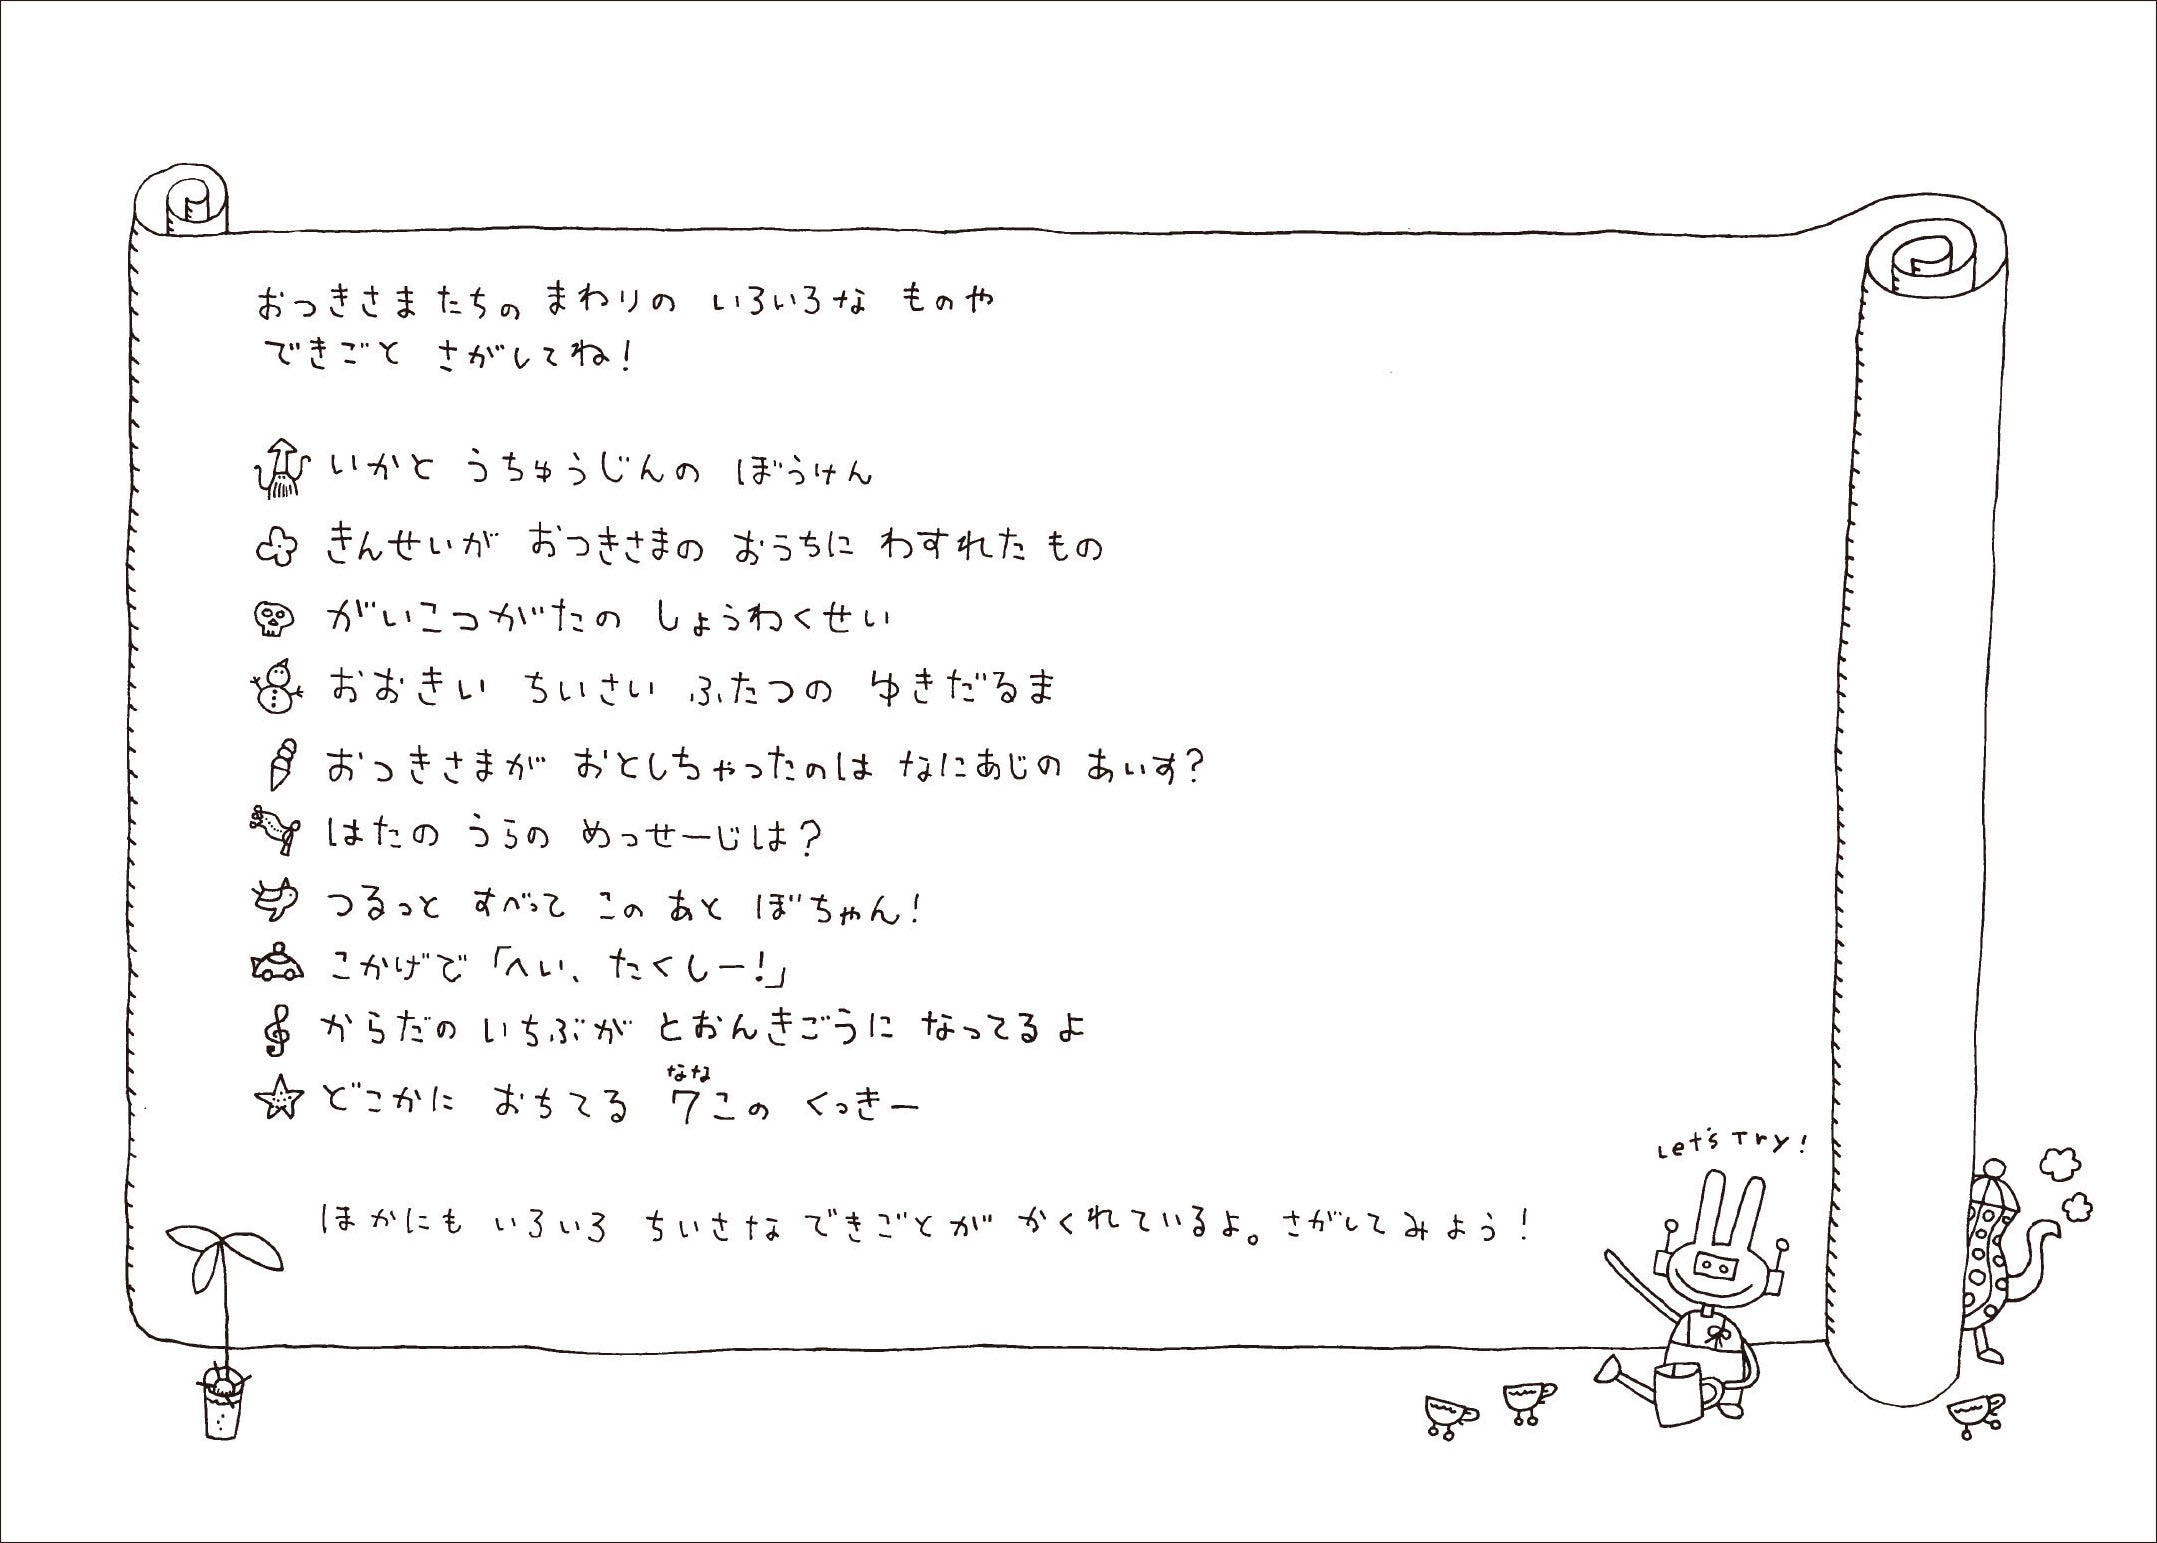 おつきさまたちの まわりの いろいろな ものや
できごと さがしてね！
いかと うちゅうじんの ぼうけん
きんせいが おつきさまの おうちに わすれた もの
がいこつがたの しょうわくせい
おおきい ちいさい ふたつの ゆきだるま
おつきさまが おとしちゃったのは なにあじの あいす？
はたの うらの めっせーじは？
つるっと すべって この あと ぼちゃん！
こかげで「へい、たくしー！」
からだの いちぶが とおんきごうに なってるよ
なな
どこかに おちてる 7この くっきー
Let's Try!
ほかにも いろいろ ちいさな できごとが かくれているよ。さがしてみよう！